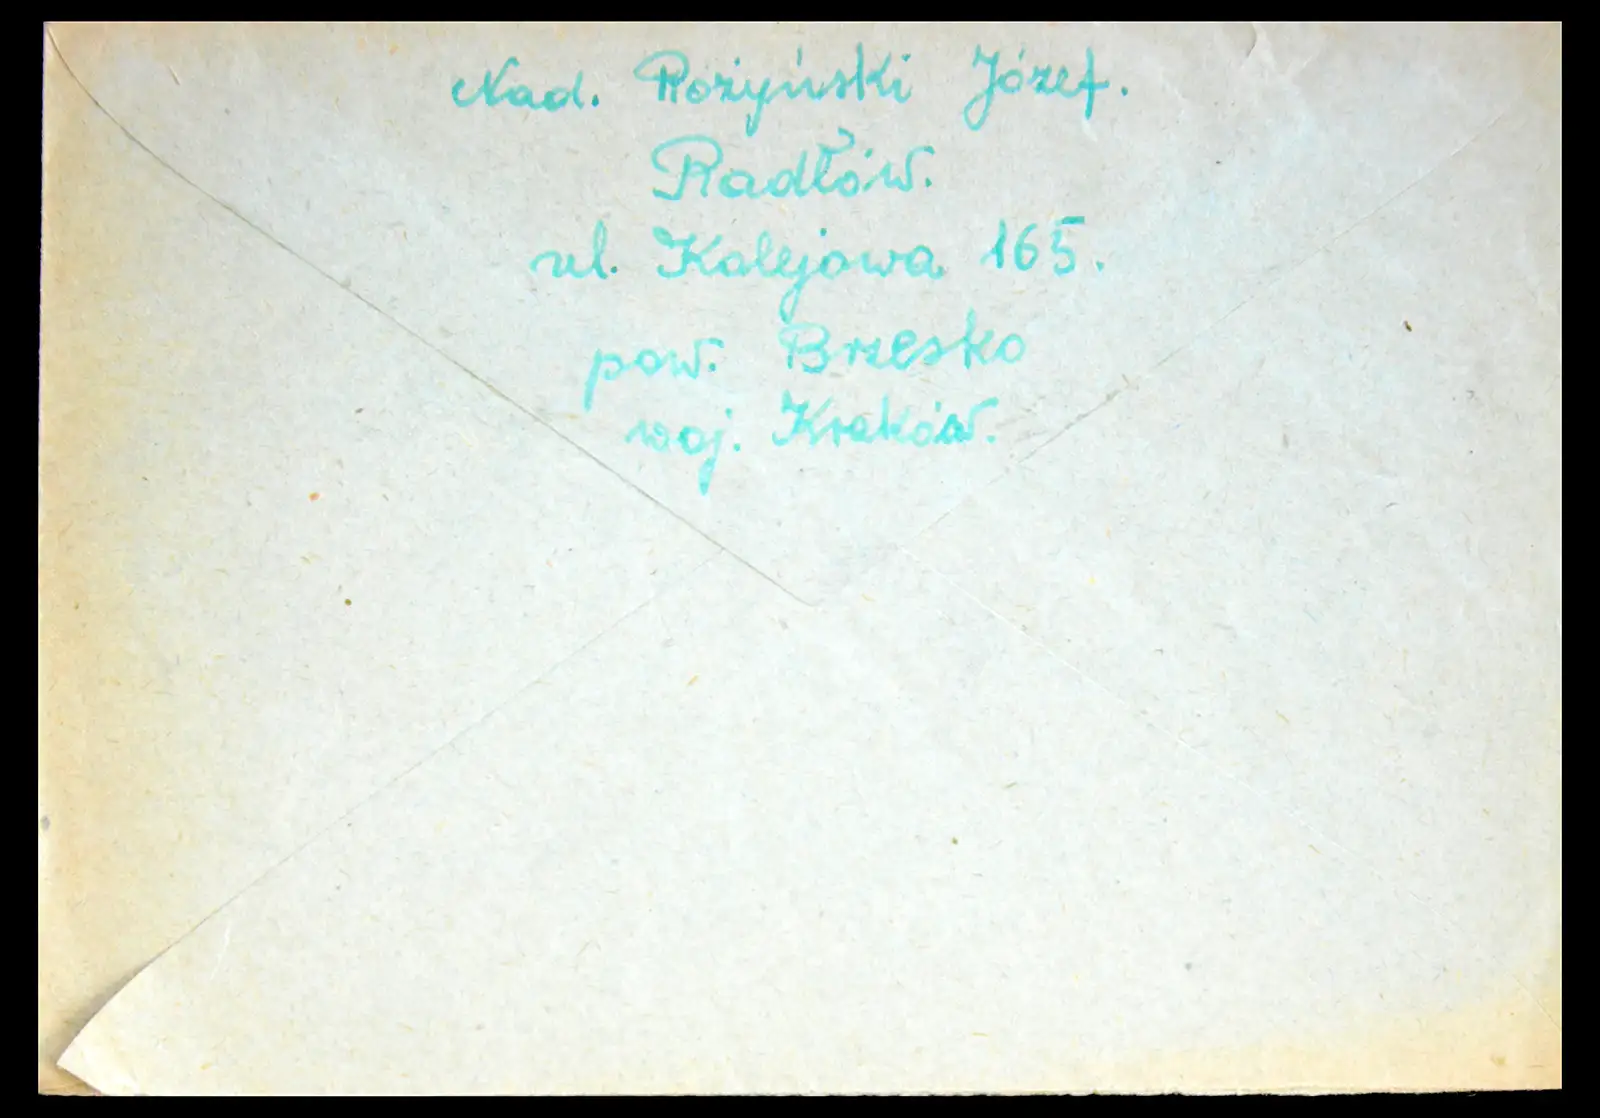 Nad. Rożyński Józef.
Radłów.
ul. Kolejowa 165.
pow. Brzesko
woj. Kraków.